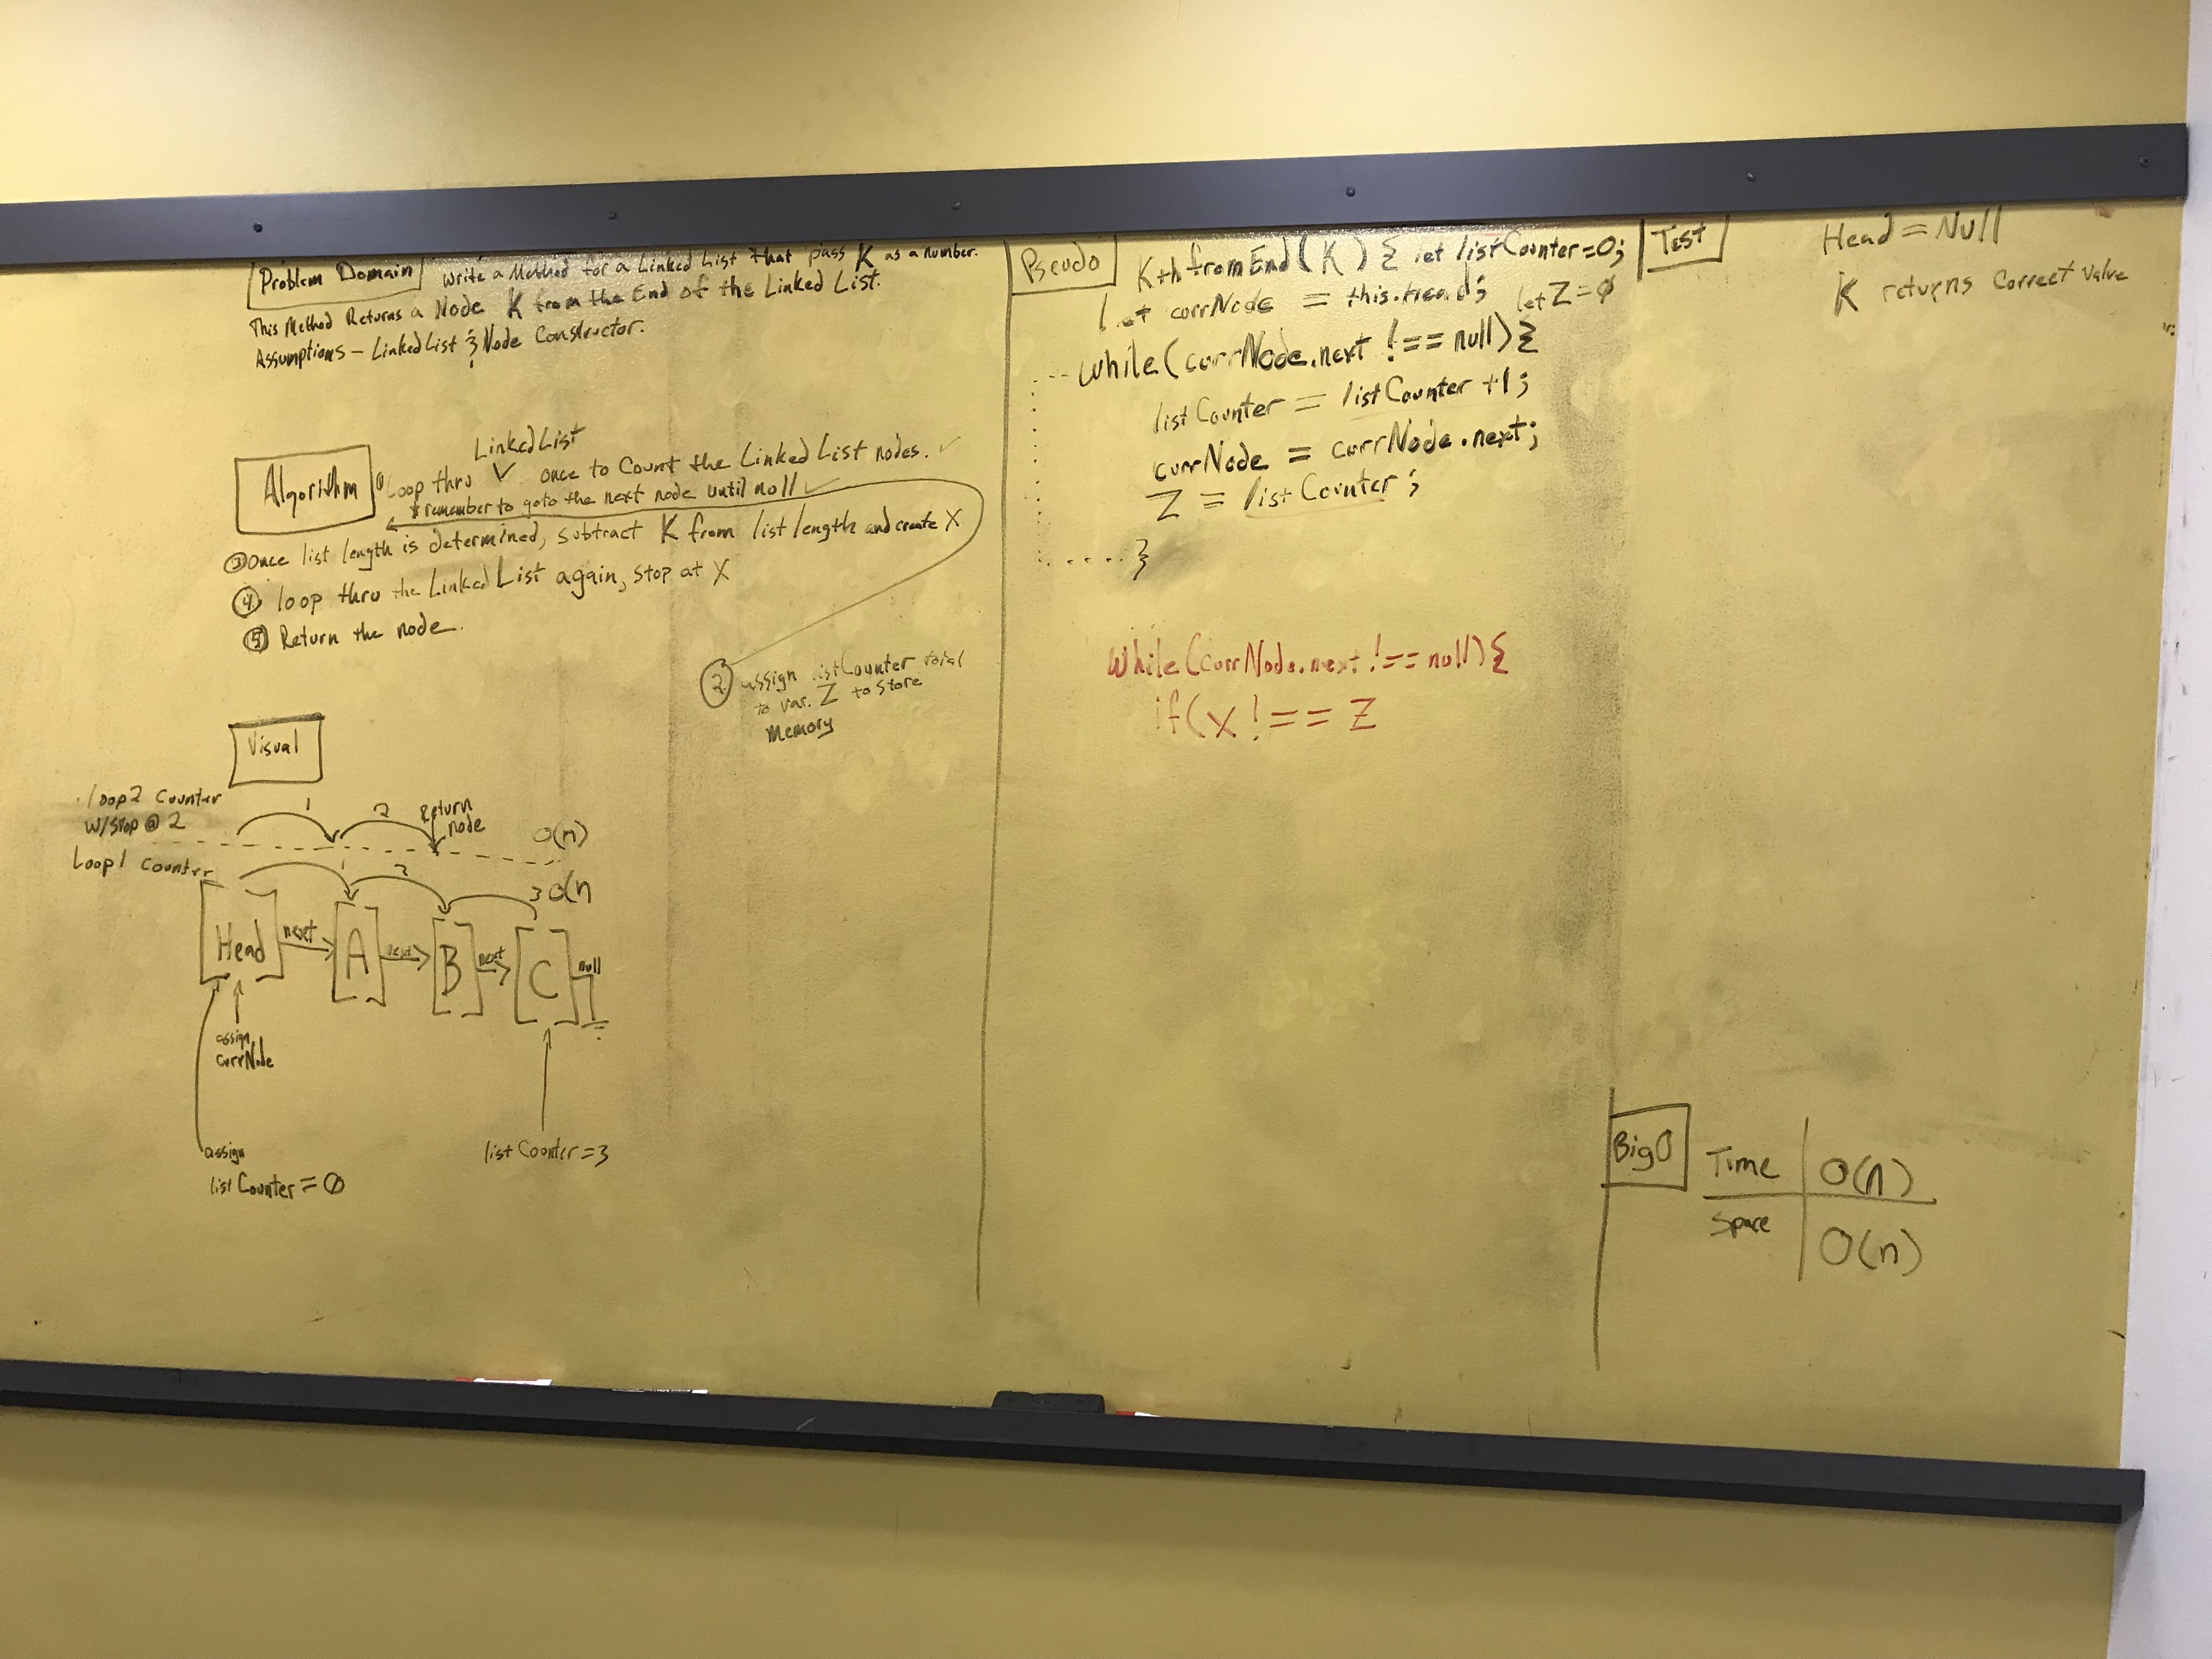 Problem Domain Write a Method for a Linked List that pass K as a number.
This Method Returns a Node K from the End of the Linked List.
Assumptions - LinkedList & Node Constructor.
Algorithm
Linked List
① Loop thru ✓ once to Count the Linked List nodes. ✓
* remember to goto the next node until null ✓
③ Once list length is determined, subtract K from list length and create X
④ loop thru the Linked List again, stop at X
⑤ Return the node.
② assign listCounter total
to var. Z to store
Memory
Visual
loop2 Counter
w/stop @ 2
1
2
Return
node
O(n)
Loop1 Counter
1
2
3 O(n
Head
next
A
next
B
next
C
null
assign
currNode
assign
listCounter = 0
listCounter = 3
Pseudo
KthfromEnd(K) { let listCounter=0;
let currNode = this.Head; let Z = 0
while(currNode.next !== null){
listCounter = listCounter +1;
currNode = currNode.next;
Z = listCounter;
}
while(currNode.next !== null){
if(X !== Z
Test
Head = Null
K returns correct value
Big O
Time O(n)
Space O(n)